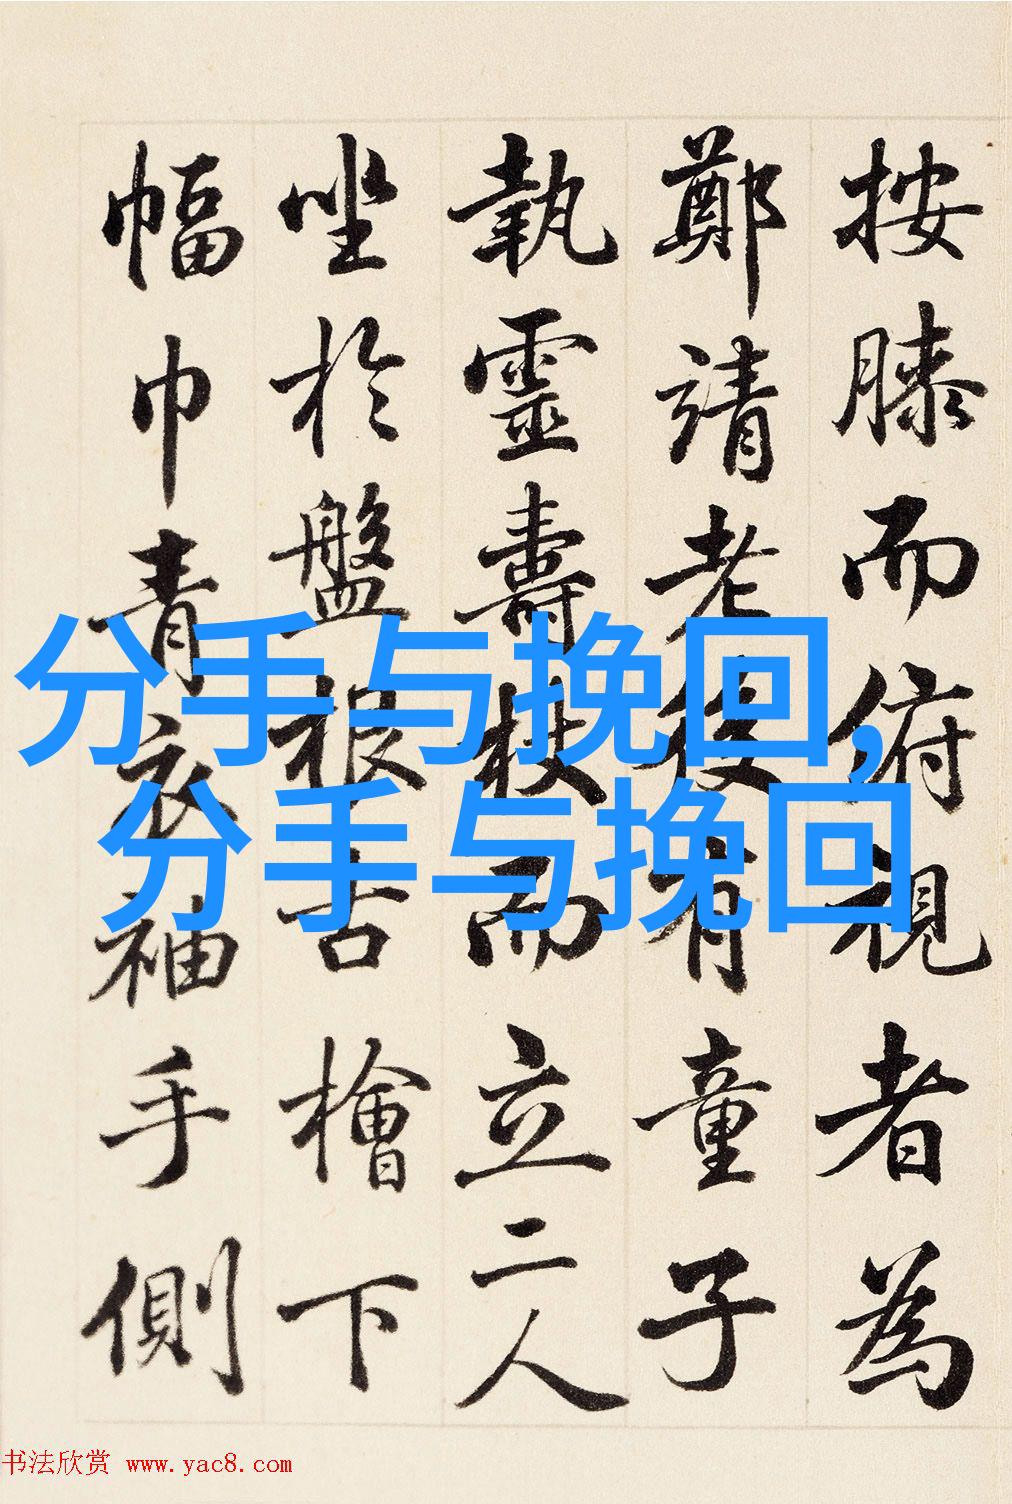 按膝而俯視者為
鄭靖老後有童子
執靈壽杖而立二人
坐於盤根古檜下
幅巾青衣袖手側
分手与挽回,
分手与挽回
书法欣赏 www.yac8.com